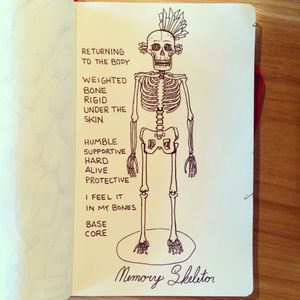 RETURNING
TO THE BODY
WEIGHTED
BONE
RIGID
UNDER THE
SKIN
HUMBLE
SUPPORTIVE
HARD
ALIVE
PROTECTIVE
I FEEL IT
IN MY BONES
BASE
CORE
Memory Skeleton